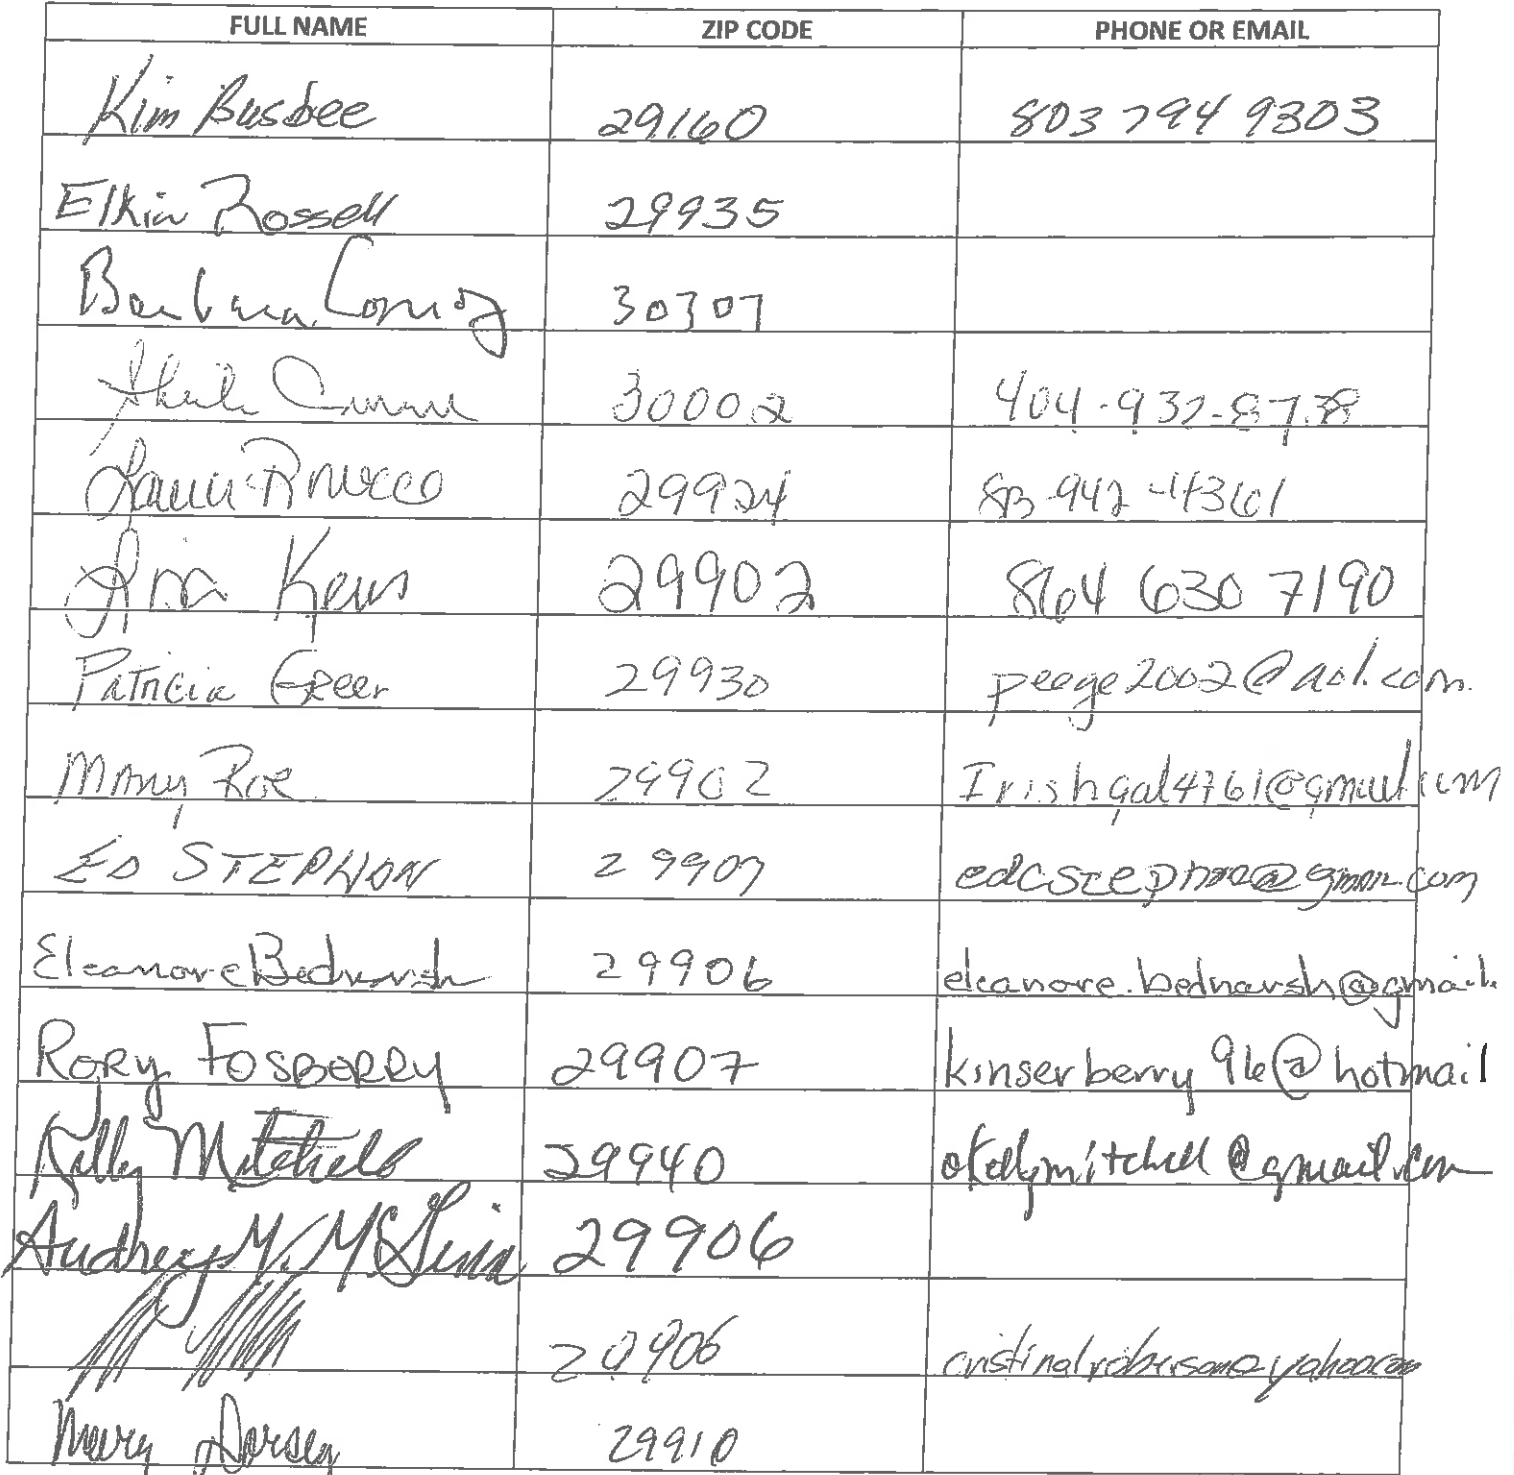 FULL NAME ZIP CODE PHONE OR EMAIL
Kim Busbee 29160 803 794 9303
Elkin Rossell 29935
Barbara 30307
Sheila 30002 404-932-8738
29924 843-942-4361
Lisa 29902 864 630 7190
Patricia Greer 29930 peege2002@aol.com.
Mary Roe 29902 Irishgal4761@gmail.com
ED STEPHON 29907
Eleanore Bednarsh 29906 eleanore.bednarsh@gmail.
RORY FOSBERRY 29907 kinserberry96@hotmail
Kelly Mitchell 29940 okellymitchell@gmail.com
Audrey Y. McGinn 29906
29906
Mary Dorsey 29910